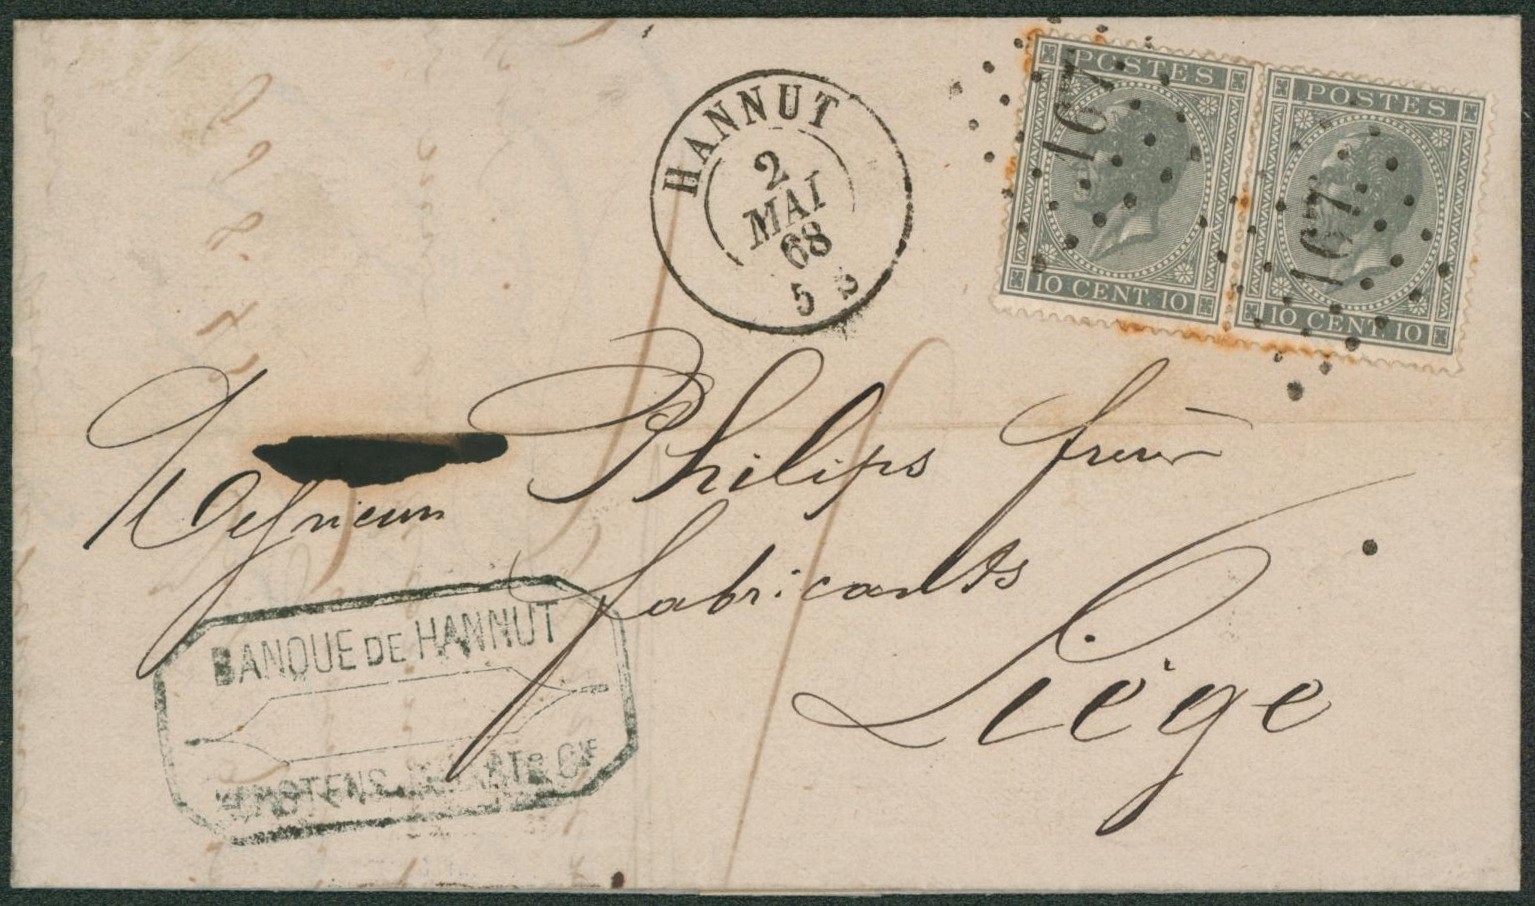 HANNUT
2
MAI
68
5 S
POSTES
167
10 CENT. 10
POSTES
167
10 CENT. 10
Messieurs Philips frères
fabricants
Liége
BANQUE DE HANNUT
& Cie